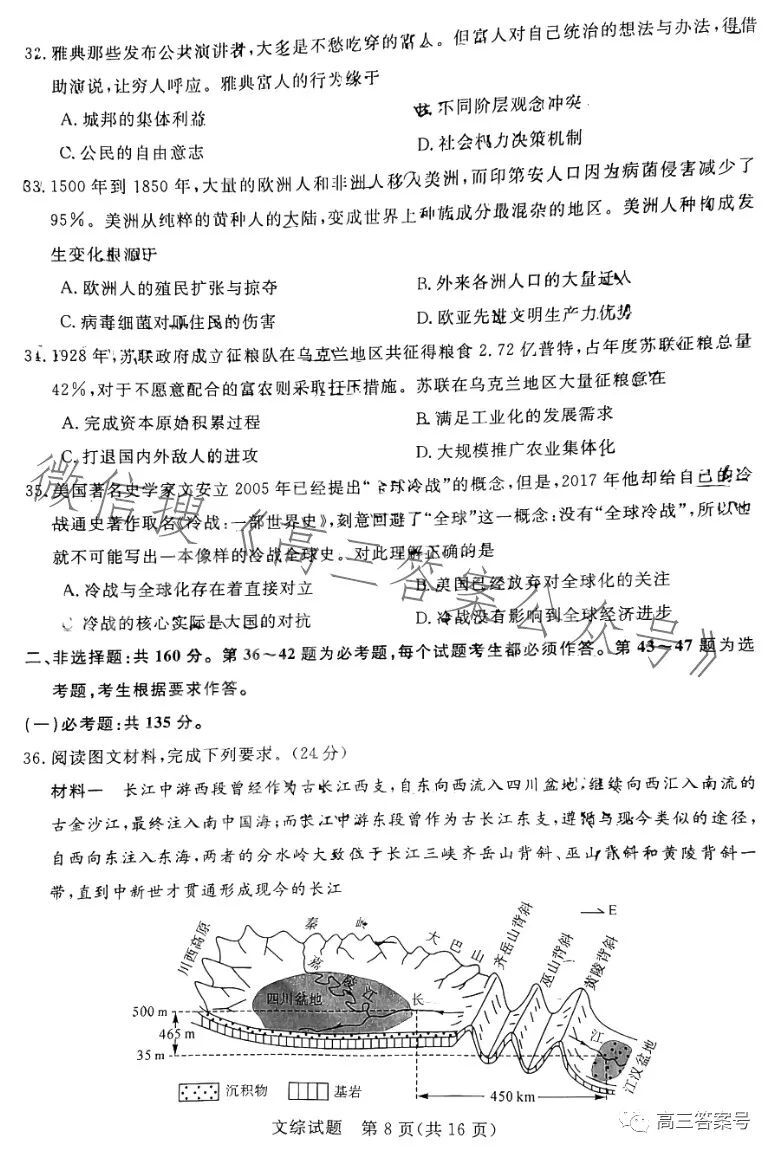 32. 雅典那些发布公共演讲者,大多是不愁吃穿的富人。但富人对自己统治的想法与办法,得借
助演说,让穷人呼应。雅典富人的行为缘于
A. 城邦的集体利益
B. 不同阶层观念冲突
C. 公民的自由意志
D. 社会权力决策机制
33. 1500 年到 1850 年,大量的欧洲人和非洲人移入美洲,而印第安人口因为病菌侵害减少了
95%。美洲从纯粹的黄种人的大陆,变成世界上种族成分最混杂的地区。美洲人种构成发
生变化根源于
A. 欧洲人的殖民扩张与掠夺
B. 外来各洲人口的大量迁入
C. 病毒细菌对原住民的伤害
D. 欧亚先进文明生产力优势
34. 1928 年,苏联政府成立征粮队在乌克兰地区共征得粮食 2.72 亿普特,占年度苏联征粮总量
42%,对于不愿意配合的富农则采取打压措施。苏联在乌克兰地区大量征粮意在
A. 完成资本原始积累过程
B. 满足工业化的发展需求
C. 打退国内外敌人的进攻
D. 大规模推广农业集体化
35. 美国著名史学家文安立 2005 年已经提出“全球冷战”的概念,但是,2017 年他却给自己的冷
战通史著作取名《冷战:一部世界史》,刻意回避了“全球”这一概念:没有“全球冷战”,所以也
就不可能写出一本像样的冷战全球史。对此理解正确的是
A. 冷战与全球化存在着直接对立
B. 美国已经放弃对全球化的关注
C. 冷战的核心实际是大国的对抗
D. 冷战没有影响到全球经济进步
二、非选择题:共 160 分。第 36～42 题为必考题,每个试题考生都必须作答。第 43～47 题为选
考题,考生根据要求作答。
(一)必考题:共 135 分。
36. 阅读图文材料,完成下列要求。(24 分)
材料一 长江中游西段曾经作为古长江西支,自东向西流入四川盆地,继续向西汇入南流的
古金沙江,最终注入南中国海;而长江中游东段曾作为古长江东支,遵循与现今类似的途径,
自西向东注入东海,两者的分水岭大致位于长江三峡齐岳山背斜、巫山背斜和黄陵背斜一
带,直到中新世才贯通形成现今的长江
川西高原
秦岭
大巴山
齐岳山背斜
巫山背斜
黄陵背斜
E
四川盆地
嘉陵江
长
江
江汉盆地
500 m
465 m
35 m
450 km
沉积物
基岩
文综试题 第 8 页(共 16 页)
微信搜《高三答案公众号》
高三答案号